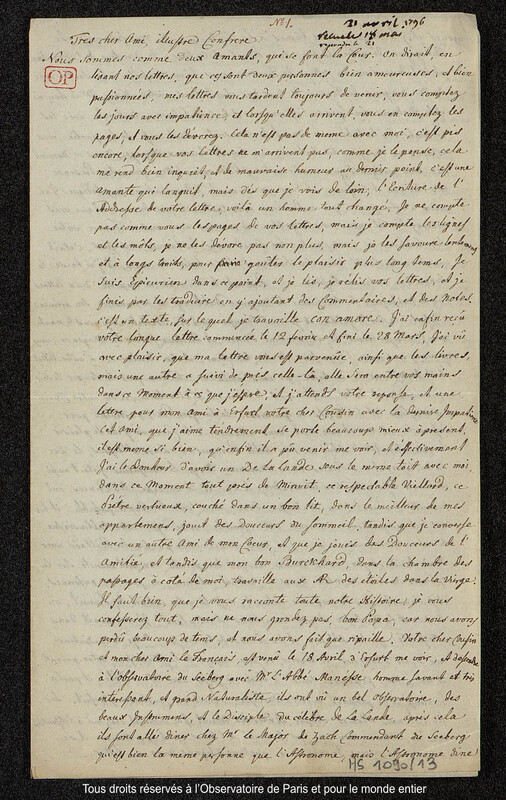 N.º 1.
21 avril 1796
reçue le 18 mai
repondu le 21
Tres cher Ami, illustre Confrere
Nous Sommes comme deux Amants, qui se font la Cour. On diroit, en
OP
lisant nos lettres, que ce sont deux personnes bien amoureuses, et bien
passionnées, mes lettres vous tardent toujours de venir, vous comptez
les jours avec impatience, et lorsqu'elles arrivent, vous en comptez les
pages, et vous les devorez. Cela n'est pas de meme avec moi, c'est pis
encore, lorsque vos lettres ne m'arrivent pas, comme je le pense, cela
me rend bien inquiet, et de mauvaise humeur au dernier point, c'est une
amante qui languit, mais dès que je vois de loin, l'Ecriture de l'
Addresse de votre lettre, voilà un homme tout changé, Je ne compte
pas comme vous les pages de vos lettres, mais je compte les lignes
et les mots, je ne les devore pas non plus, mais je les savoure
et à longs traits, pour faire goûter le plaisir plus long tems, Je
suis Epicurien dans ce point, et je lis, je relis vos lettres, et je
finis par les traduire en y ajoutant des Commentaires, et des Notes.
c'est un texte, sur le quel je travaille con amore. J'ai enfin reçu
votre longue lettre commencée le 12 fevrier et fini le 28 Mars. J'ai vû
avec plaisir, que ma lettre vous est parvenuë, ainsi que les livres,
mais une autre a suivi de près celle-là, elle sera entre vos mains
dans ce Moment à ce que j'espere, et j'attends votre reponse, et une
lettre pour mon Ami à Erfurt votre cher Cousin avec la derniere Impatience
Cet Ami, que j'aime tendrement se porte beaucoup mieux à présent,
il est meme si bien, qu'enfin il a pû venir me voir, et effectivement
J'ai le Bonheur d'avoir un De la Lande sous le meme toit avec moi
dans ce Moment tout près de Minuit, ce respectable Vieillard, ce
Prêtre vertueux, couché dans un bon lit, dans le meilleur de mes
appartemens, jouit des Douceurs du sommeil, tandis que je converse
avec un autre Ami de mon Coeur, et que je jouis des Douceurs de l'
Amitié, et tandis que mon bon Burckhard, dans la chambre des
passages à coté de moi, travaille aux AR des étoiles dans la Vierge.
Il faut bien que je vous raconte toute notre Histoire; je vous
confesserez tout, mais ne nous grondez pas, bon Papa, car nous avons
perdû beaucoup de tems, et nous avons fait que ripaille. Votre cher Cousin
et mon cher Ami le Français est venû le 18 Avril d'Erfurt me voir, et descendre
à l'observatoire du Seeberg avec Mr l'Abbé Manesse homme savant et très
intéressant, et grand Naturaliste, ils ont vû un bel observatoire, des
beaux Instrumens, et le Disciple du celebre de la Lande, après cela
ils sont allé diner chez Mr le Major de Zach Commandant du Seeberg
qui est bien la meme personne que l'Astronome, mais l'Astronome dine
MS 1090/13
Tous droits réservés à l'Observatoire de Paris et pour le monde entier